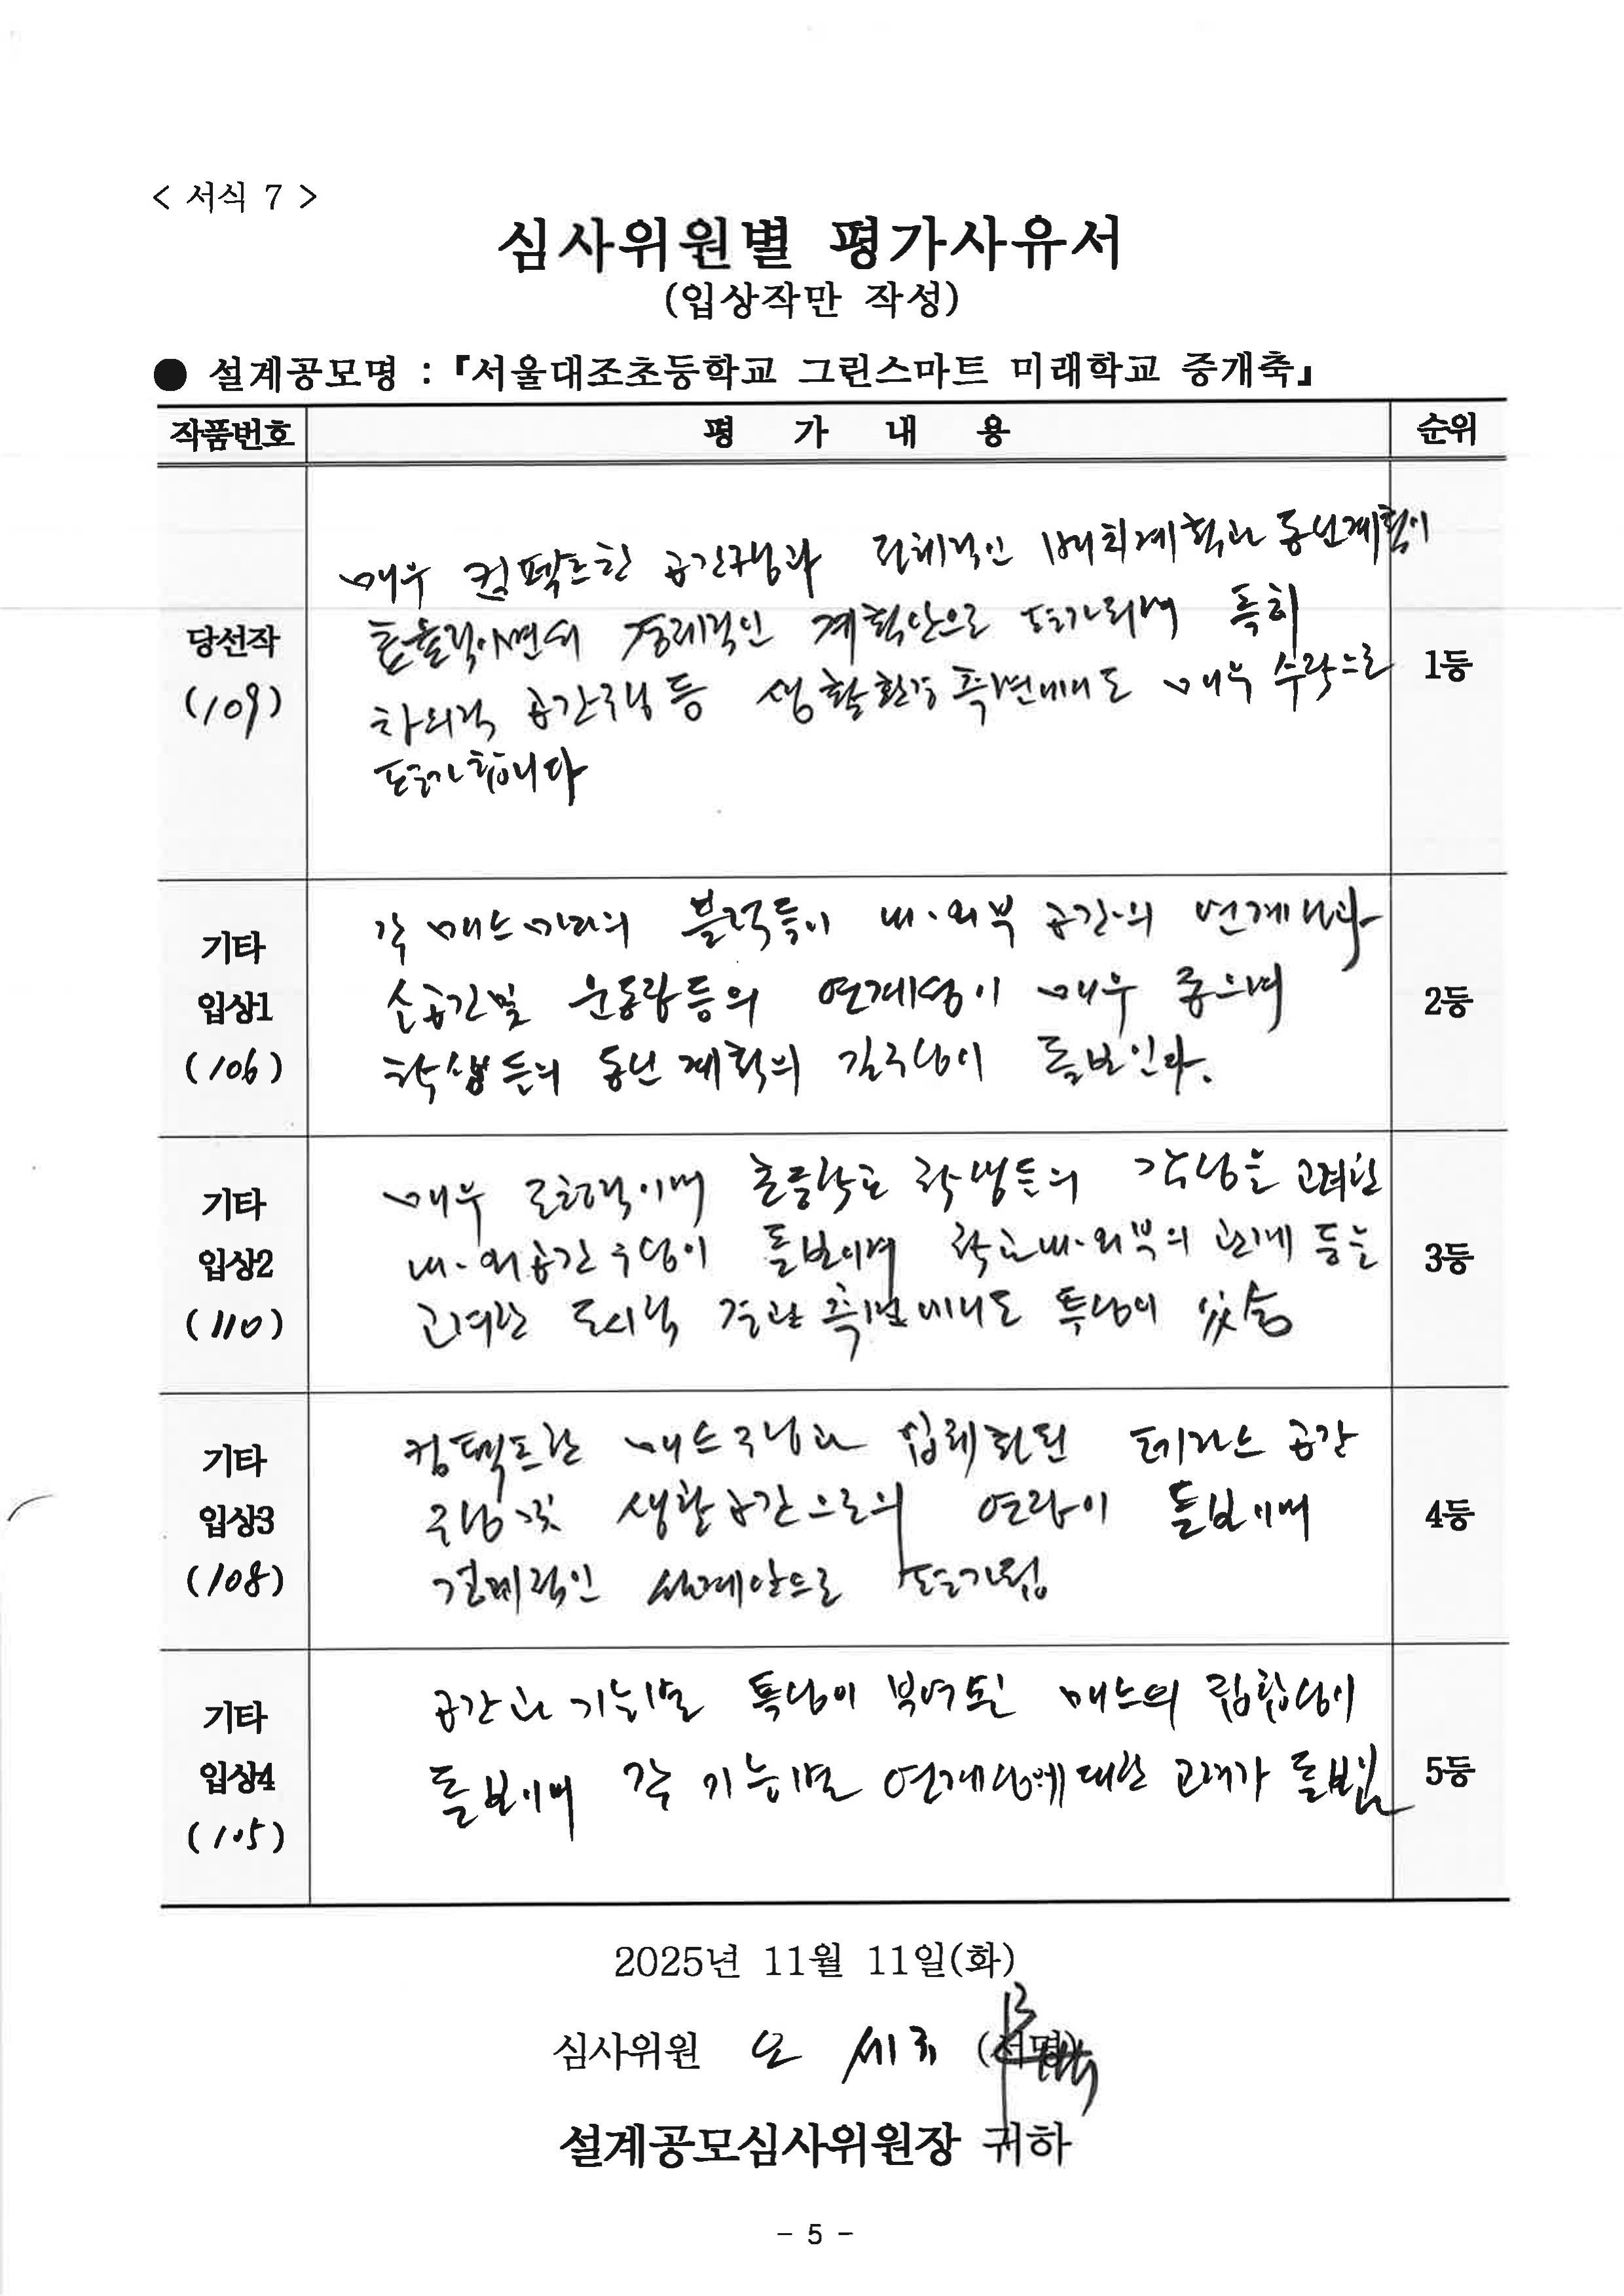 < 서식 7 >
심사위원별 평가사유서
(입상작만 작성)
● 설계공모명 : 『서울대조초등학교 그린스마트 미래학교 증개축』
작품번호 평 가 내 용 순위
당선작
(109)
매우 컴팩트한 공간구성과 전체적인 배치계획과 동선계획이
효율적이면서 경제적인 계획안으로 평가되며 특히
입체적 공간구성 등 생활환경 측면에서도 매우 수작으로
평가합니다
1등
기타
입상1
(106)
각 매스마다의 블럭들이 내·외부 공간의 연계성과
운동장등의 연계성이 매우 좋으며
학생들의 동선계획의 돋보인다.
2등
기타
입상2
(110)
매우 이며 초등학교 학생들의 감성을 고려한
내·외공간 구성이 돋보이며 학교내·외부의 관계 등을
고려한 도시적 경관 측면에서도 특성이 있음
3등
기타
입상3
(108)
컴팩트한 매스구성과 입체화된 테라스 공간
구성 및 생활공간으로의 연장이 돋보이며
경제적인 설계안으로 평가됨
4등
기타
입상4
(105)
공간과 기능별 특성이 부여된 매스의 결합성이
돋보이며 각 기능별 연계성에 대한 고려가 돋보임
5등
2025년 11월 11일(화)
심사위원 오 세규 (서명)
설계공모심사위원장 귀하
- 5 -